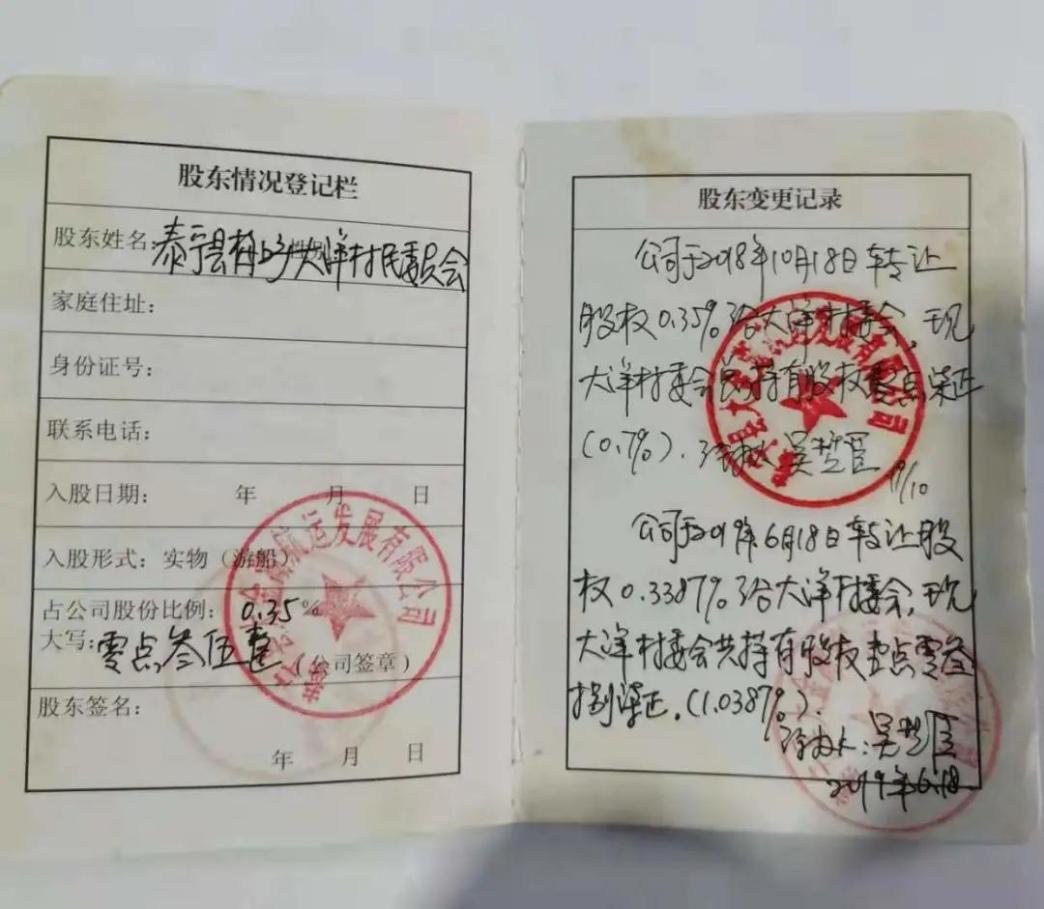 股东情况登记栏
股东姓名:泰宁县梅口乡大洋村民委员会
家庭住址:
身份证号:
联系电话:
入股日期: 年 月 日
入股形式:实物(游船)
占公司股份比例:0.35%
大写:零点叁伍整(公司签章)
股东签名:
年 月 日
航运发展有限公司
股东变更记录
公司于2018年10月18日转让
股权0.35%给大洋村委会,现
大洋村委会共持有股权零点柒正
(0.7%).经办人 吴 臣
/10
公司于2019年6月18日转让股
权0.3387%给大洋村委会,现
大洋村委会共持有股权壹点零叁
捌柒正.(1.0387%).
经办人:吴 臣
2019年6.18
发展有限公司